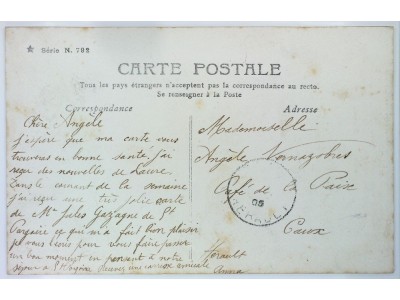 ★ Série N. 782
CARTE POSTALE
Tous les pays étrangers n'acceptent pas la correspondance au recto.
Se renseigner à la Poste
Correspondance
Adresse
Chère Angèle
J'espère que ma carte vous
trouvera en bonne santé, j'ai
reçu des nouvelles de Laure.
Dans le courant de la semaine
j'ai reçu une très jolie carte
de Mr Jules Gazagne de St
Pargoire ce qui m'a fait bon plaisir
je vous écris pour vous faire passer
un bon moment en pensant à notre
séjour à St
amicale
Anna
Mademoiselle
Angèle Vernazobres
Café de la Paix
Caux
Hérault
05
HERAULT